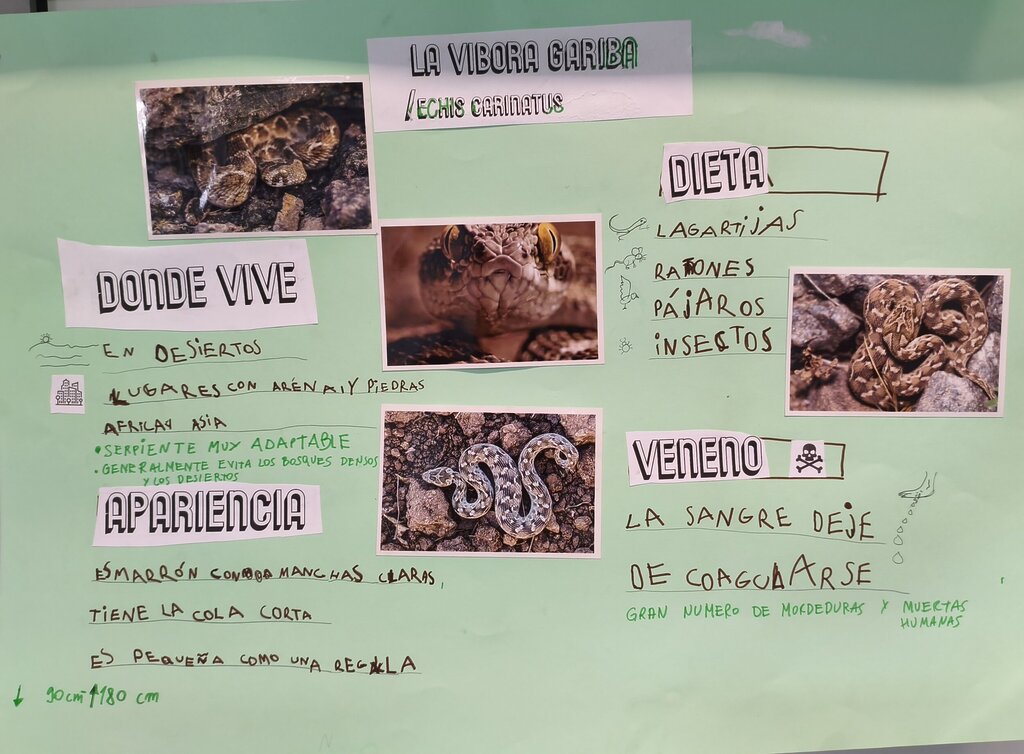 LA VIBORA GARIBA
/ECHIS CARINATUS
DONDE VIVE
EN DESIERTOS
LUGARES CON ARENA Y PIEDRAS
AFRICA Y ASIA
• SERPIENTE MUY ADAPTABLE
• GENERALMENTE EVITA LOS BOSQUES DENSOS
Y LOS DESIERTOS
APARIENCIA
ES MARRÓN CON MANCHAS CLARAS,
TIENE LA COLA CORTA
ES PEQUEÑA COMO UNA REGLA
↓ 90cm ↑180 cm
DIETA
LAGARTIJAS
RATONES
PÁJAROS
INSECTOS
VENENO
LA SANGRE DEJE
DE COAGULARSE
GRAN NUMERO DE MORDEDURAS Y MUERTAS
HUMANAS